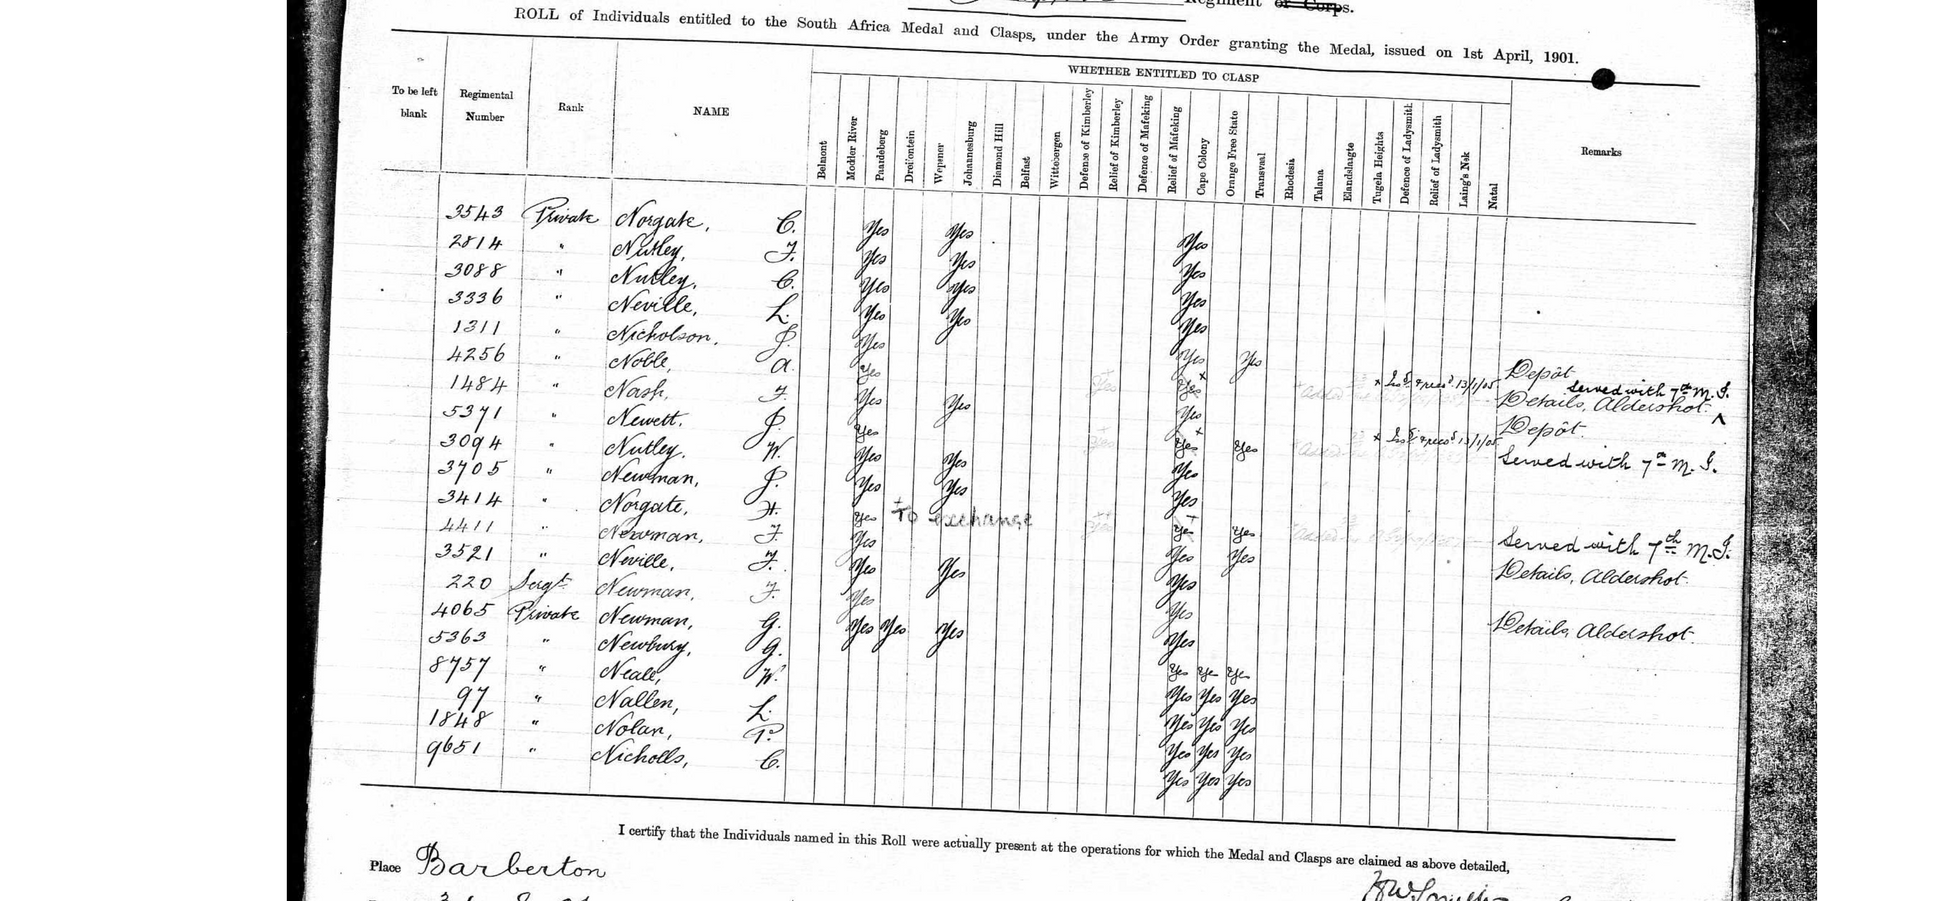 Regiment or Corps.
ROLL of Individuals entitled to the South Africa Medal and Clasps, under the Army Order granting the Medal, issued on 1st April, 1901.
WHETHER ENTITLED TO CLASP
To be left blank Regimental Number Rank NAME Belmont Modder River Paardeberg Dreifontein Wepener Johannesburg Diamond Hill Belfast Wittebergen Defence of Kimberley Relief of Kimberley Defence of Mafeking Relief of Mafeking Cape Colony Orange Free State Transvaal Rhodesia Talana Elandslaagte Tugela Heights Defence of Ladysmith Relief of Ladysmith Laing's Nek Natal Remarks
3543 Private Norgate, C. Yes Yes Yes
2814 " Nutley, F. Yes Yes Yes
3088 " Nutley, C. Yes Yes Yes
3336 " Neville, L. Yes Yes Yes
1311 " Nicholson, J. Yes Yes Yes Depôt
4256 " Noble, A. Yes Yes Yes 13/1/05 Served with 7th M.I.
1484 " Nash, F. Yes Yes Yes Details, Aldershot.
5371 " Newett, J. Yes Yes Yes Yes 13/1/05 Depôt.
3094 " Nutley, W. Yes Yes Yes Served with 7th M.I.
3705 " Newman, J. Yes Yes Yes
3414 " Norgate, H. Yes To exchange Yes Yes Yes
4411 " Newman, F. Yes Yes Yes Served with 7th M.I.
3521 " Neville, F. Yes Yes Yes Details, Aldershot.
220 Sergt Newman, F. Yes Yes
4065 Private Newman, G. Yes Yes Yes Yes Details, Aldershot.
5363 " Newbury, G. Yes Yes Yes
8757 " Neale, W. Yes Yes Yes
97 " Nallen, L. Yes Yes Yes
1848 " Nolan, P. Yes Yes Yes
9651 " Nicholls, C. Yes Yes Yes
I certify that the Individuals named in this Roll were actually present at the operations for which the Medal and Clasps are claimed as above detailed,
Place Barberton